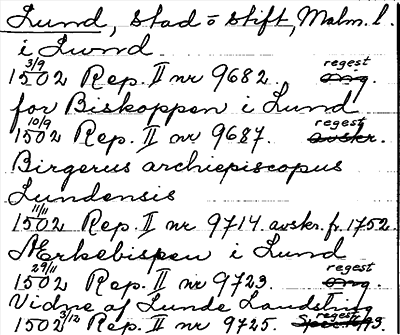 Lund, stad o stift, Malm. l.
i Lund
1502 3/9 Rep. II nr 9682. regest
for Biskoppen i Lund
1502 10/9 Rep. II nr 9687. regest avskr.
Birgerus archiepiscopus
Lundensis
1502 11/11 Rep. II nr 9714. avskr. fr. 1752.
Ærkebispen i Lund
1502 29/11 Rep. II nr 9723. regest
Vidne af Lunde Landsting
1502 3/12 Rep. II nr 9725. regest